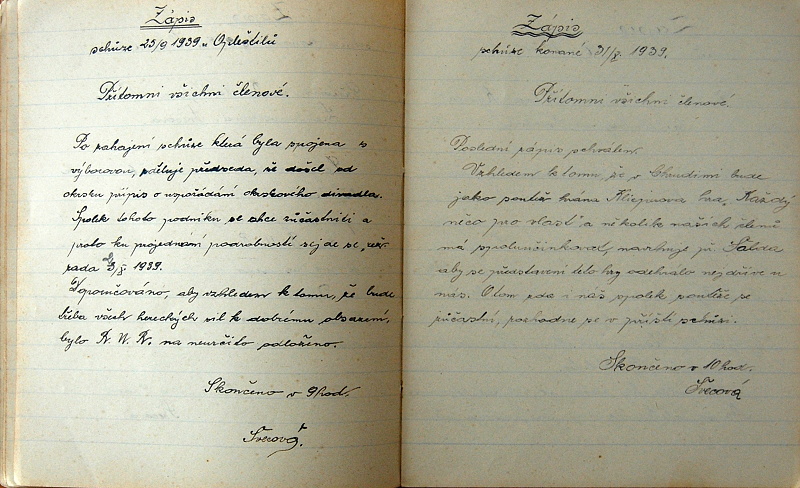 Zápis
schůze 25/9 1939 u Opletilů
Přítomni všichni členové.
Po zahájení schůze která byla spojena s
výborovou, sděluje předseda, že došel od
okrsku přípis o uspořádání okrskového divadla.
Spolek tohoto podniku se chce zúčastniti a
proto ku projednání podrobností sejde se "rež.
rada 3/X. 1939.
Doporučováno, aby vzhledem k tomu, že bude
třeba všech hereckých sil k dobrému obsazení,
bylo R. U. R. na neurčito odloženo.
Skončeno v 9 hod.
Švecová.
Zápis
schůze konané 31/X. 1939.
Přítomni všichni členové.
Poslední zápis schválen.
Vzhledem k tomu, že v Chrudimi bude
jako soutěž hrána hra, "Každý
něco pro vlast" a několik našich členů
má spoluúčinkovat, navrhuje př. Šalda
aby se představení této hry odehrálo nejdříve u
nás. O tom zda i náš spolek soutěže se
zúčastní, rozhodne se v příští schůzi.
Skončeno v 10 hod.
Švecová